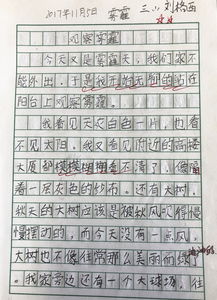 2017年11月5日 雾霾 三、刘梧西
观察雾霾
今天又是雾霾天，我们家不
能外出，于是我正站无聊的站在
阳台上观察雾霾。
我看见天空白色一片，也看
不见太阳，我又看见附近的高楼
大厦都模模糊糊看不清了，像隔
着一层灰色的纱布，还有大树，
秋天的大树应该是被秋风吹得慢
慢摆动的，而今天没有一点风，
大树也不像往常那么美丽而绿
。我家旁边还有一个大球场，往